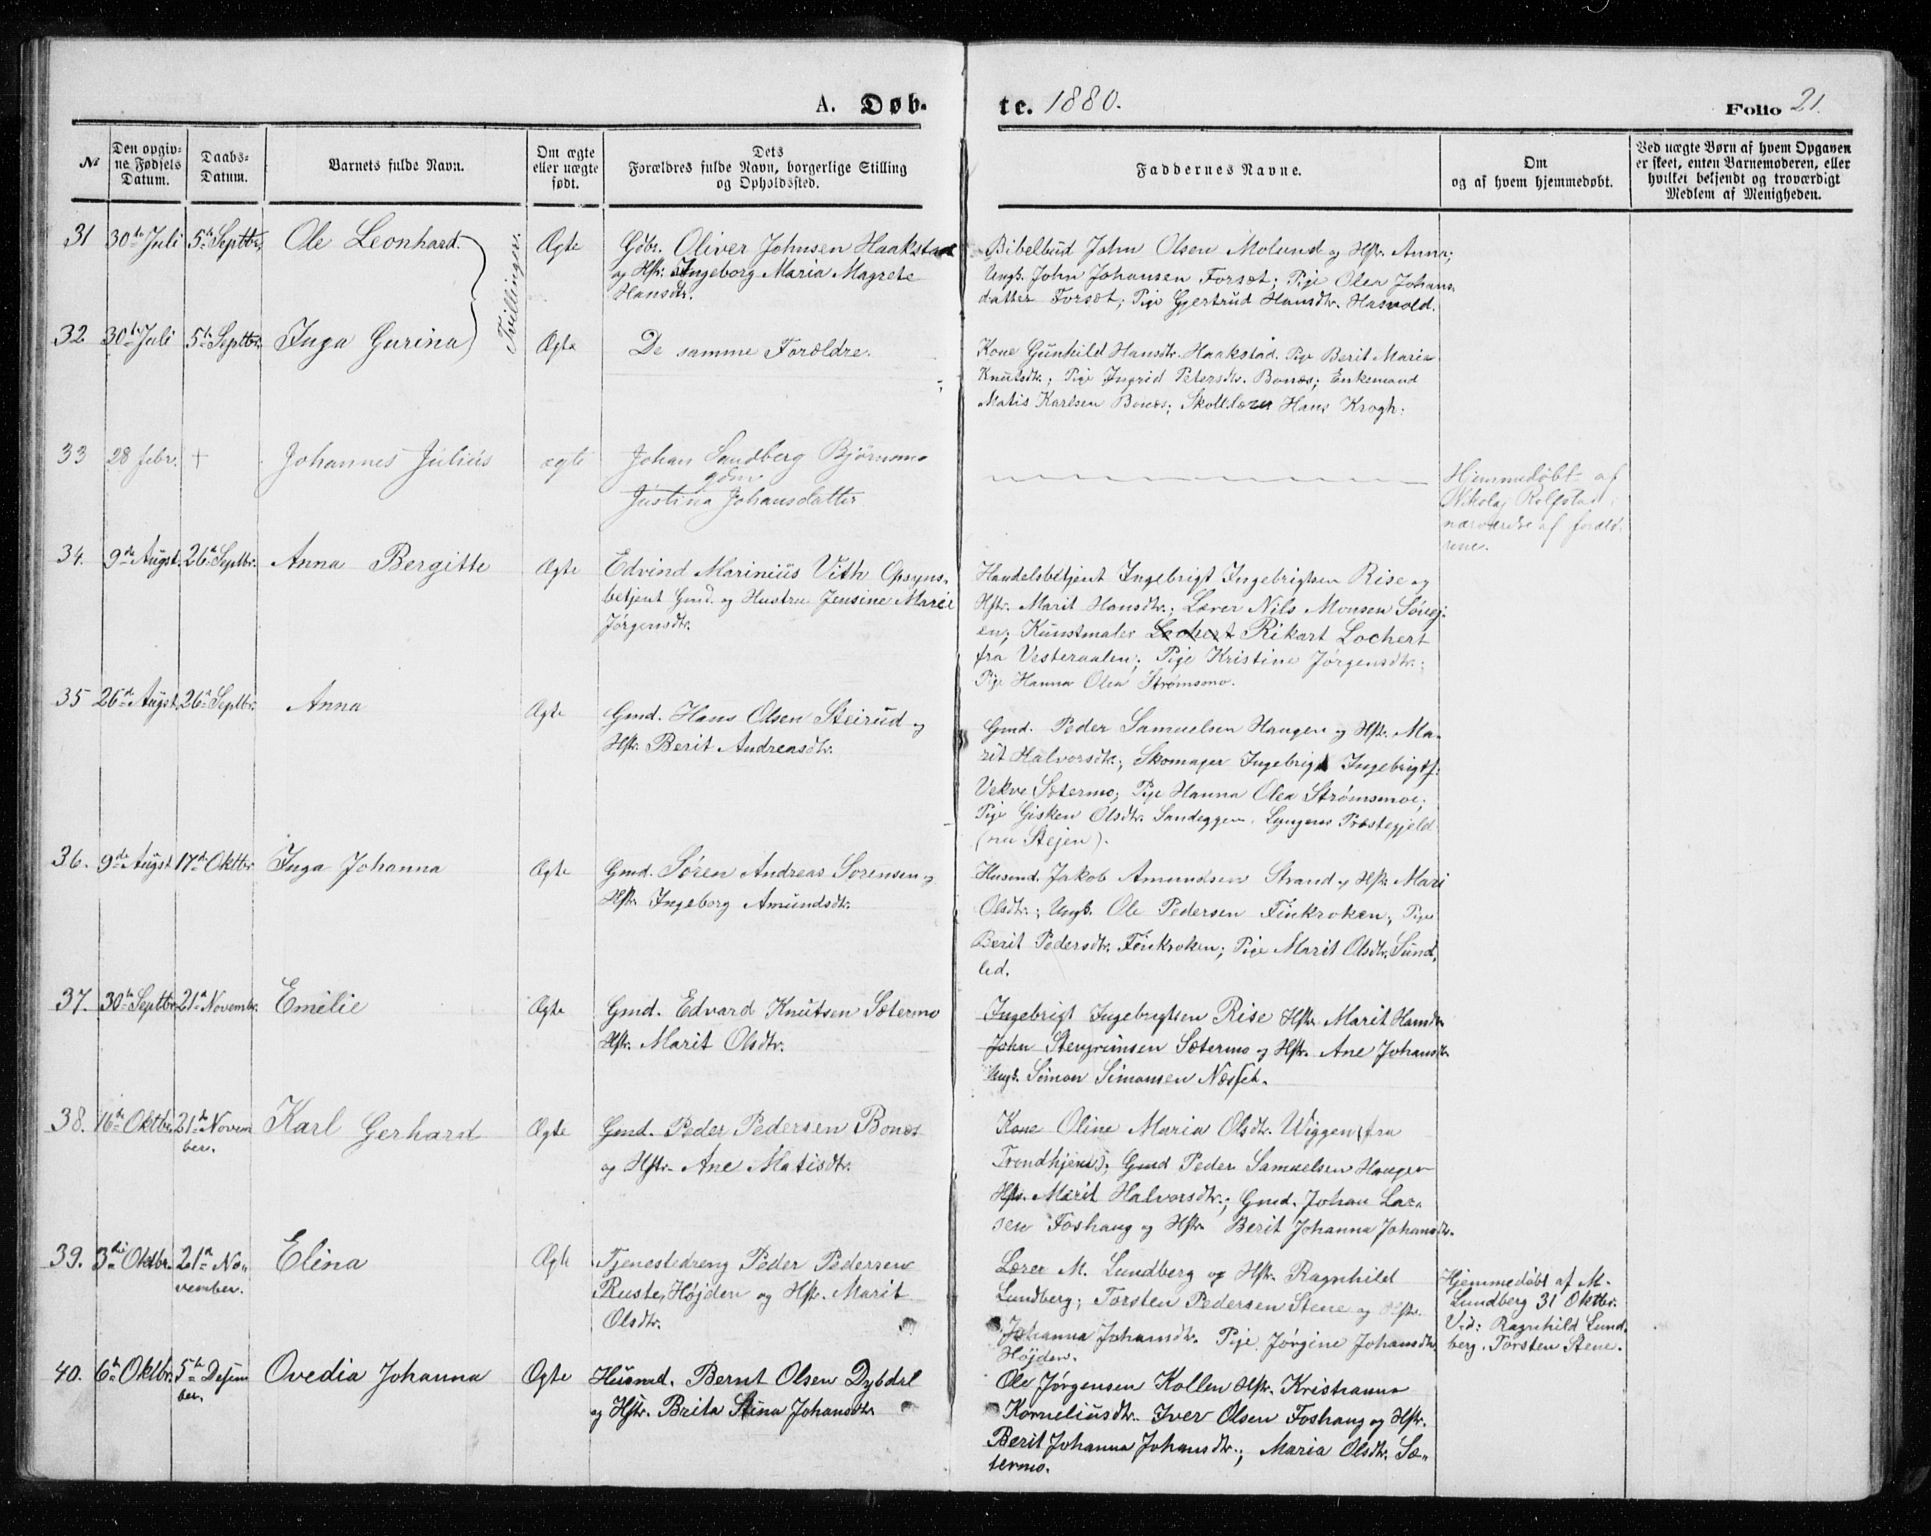 A. Døb-
te. 1880.
Folio 21.
№
Den opgiv-
ne Fødsels
Datum.
Daabs-
Datum.
Barnets fulde Navn.
Om ægte
eller uægte
født.
Dets
Forældres fulde Navn, borgerlige Stilling
og Opholdssted.
Faddernes Navne.
Om
og af hvem hjemmedøbt.
Ved uægte Børn af hvem Opgaven
er skeet, enten Barnemoderen, eller
hvilket bekjendt og troværdigt
Medlem af Menigheden.
31 30te Juli 5te Septbr. Ole Leonhard. Tvillinger. Ægte
Gdbr. Oliver Johnsen Haakstad
og Hstr. Ingeborg Maria Magrete
Hansdtr.
Bibelbud John Olsen Molund og Hstr. Anna;
Ungk. John Johansen Forsæt; Pige Olea Johans
datter Forsæt; Pige Gjertrud Hansdtr. Hasvold.
32 30te Juli 5te Septbr. Inga Gurina Ægte
De samme Forældre.
Kone Gunhild Hansdtr. Haakstad. Pige Berit Maria
Knutsdtr.; Pige Ingrid Petersdtr. Bonæs; Enkemand
Matis Karlsen Bonæs; Skolelærer Hans Krogh.
33 28 febr. + Johannes Julius ægte
Johan Sandberg Bjørnsmo
gdm
Justina Johansdatter
Hjemmedøbt af
Nikolaj Rolfstad i
nærværelse af foræld-
rene.
34. 9de Augst. 26de Septbr. Anna Bergitte Ægte
Edvind Marinius Vith Opsyns-
betjent Gmd. og Hustru Jensine Marie
Jørgensdtr.
Handelsbetjent Ingebrigt Ingebrigtsen Rise og
Hstr. Marit Hansdtr.; Lærer Nils Monsen
Kunstmaler Lochert Rikart Lochert
fra Vesteraalen; Pige Kristine Jørgensdtr.;
Pige Hanna Olea Strømsmo.
35 26de Augst. 26de Septbr. Anna Ægte
Gmd. Hans Olsen Steirud og
Hstr. Berit Andreasdtr.
Gmd. Peder Samuelsen Haugen og Hstr. Ma-
rit Halvorsdtr.; Skomager Ingebrigt Ingebrigts.
Vekve Sætermo; Pige Hanna Olea Strømsmoe;
Pige Gisken Olsdtr. Sandeggen. Lyngens Præstegjeld
(nu Stejen).
36. 9de Augst 17de Oktbr. Inga Johanna Ægte
Gmd. Søren Andreas Sørensen og
Hstr. Ingeborg Amundsdtr.
Husmd. Jakob Amundsen Strand og Hstr. Mari
Olsdtr.; Ungk. Ole Pedersen Finkroken; Pige
Berit Pedersdtr. Finkroken; Pige Marit Olsdtr. Sund-
led.
37. 30te Septbr. 21de Novembr. Emilie Ægte
Gmd. Edvard Knutsen Sætermo
Hstr. Marit Olsdtr.
Ingebrigt Ingebrigtsen Rise Hstr. Marit Hansdtr
John Stengrimsen Sætermo og Hstr. Ane Johansdtr.
Ungk. Simon Simonsen Næsset.
38. 16de Oktbr. 21de Novem
ber. Karl Gerhard Ægte
Gmd. Peder Pedersen Bonæs
og Hstr. Ane Matisdtr.
Kone Oline Maria Olsdtr. Wiggen (fra
Trondhjem); Gmd Peder Samuelsen Haugen
Hstr. Marit Halvorsdtr.; Gmd. Johan Lar-
sen Foshaug og Hstr. Berit Johanna Johansdtr.
39. 3die Oktbr. 21de No-
vember. Elina Ægte
Tjenestedreng Peder Pedersen
Ruste, Højden og Hstr. Marit
Olsdtr.
Lærer M. Lundberg og Hstr. Ragnhild
Lundberg; Torsten Pedersen Stene og Hstr.
Johanna Johansdtr. Pige Jørgine Johansdtr.
Højden.
Hjemmedøbt af M.
Lundberg 31 Oktbr.
Vid: Ragnhild Lund-
berg. Torsten Stene.
40. 6te Oktbr. 5te Desem
ber. Ovedia Johanna Ægte
Husmd. Bernt Olsen Dybdal
og Hstr. Brita Stina Johansdtr.
Ole Jørgensen Kollen Hstr. Kristianna
Korneliusdtr. Iver Olsen Foshaug og Hstr.
Berit Johanna Johansdtr.; Maria Olsdtr. Sæ-
termo.